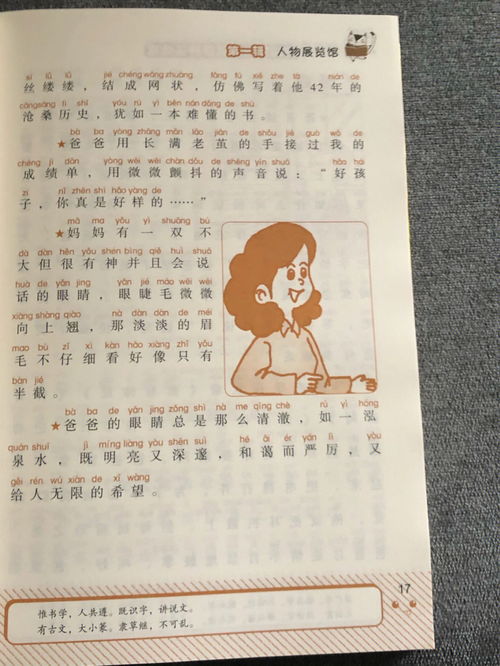 第一辑 人物展览馆
sī lǚ lǚ jié chéng wǎng zhuàng fǎng fú xiě zhe tā nián de
丝缕缕，结成网状，仿佛写着他42年的
cāng sāng lì shǐ yóu rú yì běn nán dǒng de shū
沧桑历史，犹如一本难懂的书。
bà ba yòng zhǎng mǎn lǎo jiǎn de shǒu jiē guò wǒ de
★爸爸用长满老茧的手接过我的
chéng jì dān yòng wēi wēi chàn dǒu de shēng yīn shuō hǎo hái
成绩单，用微微颤抖的声音说：“好孩
zi nǐ zhēn shì hǎo yàng de
子，你真是好样的……”
mā ma yǒu yì shuāng bú
★妈妈有一双不
dà dàn hěn yǒu shén bìng qiě huì shuō
大但很有神并且会说
huà de yǎn jing yǎn jié máo wēi wēi
话的眼睛，眼睫毛微微
xiàng shàng qiào nà dàn dàn de méi
向上翘，那淡淡的眉
mao bù zǐ xì kàn hǎo xiàng zhǐ yǒu
毛不仔细看好像只有
bàn jié
半截。
bà ba de yǎn jing zǒng shì nà me qīng chè rú yì hóng
★爸爸的眼睛总是那么清澈，如一泓
quán shuǐ jì míng liàng yòu shēn suì hé ǎi ér yán lì yòu
泉水，既明亮又深邃，和蔼而严厉，又
gěi rén wú xiàn de xī wàng
给人无限的希望。
17
惟书学，人共遵。既识字，讲说文。
有古文，大小篆。隶草继，不可乱。